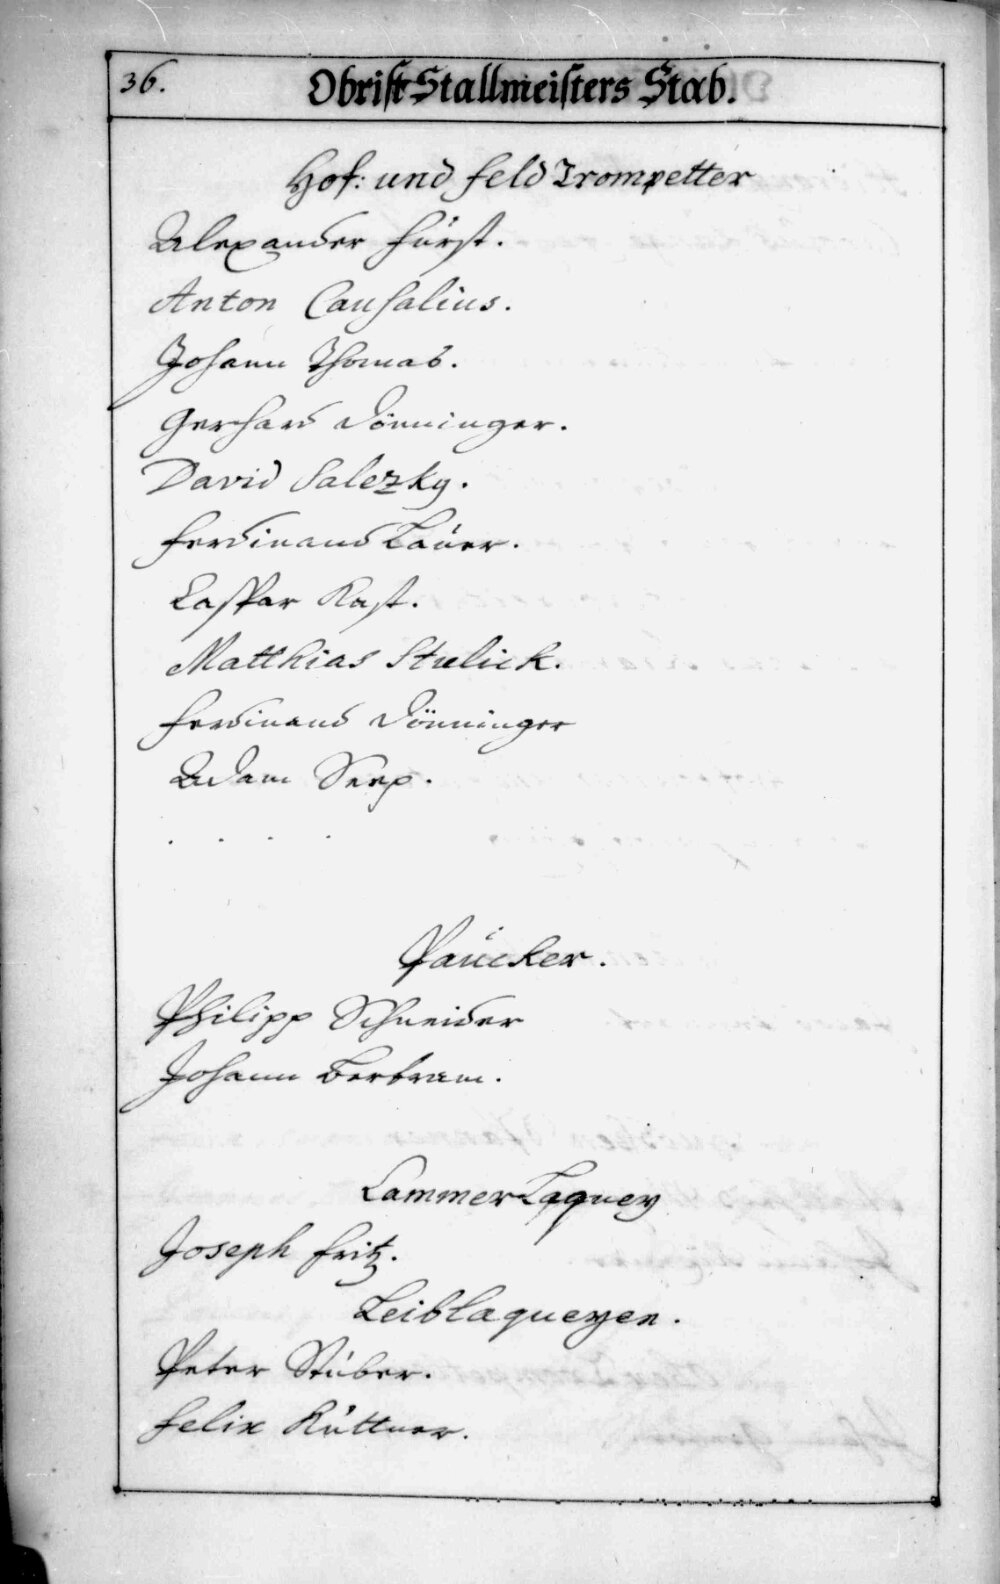 36.
Obrist Stallmeisters Stab.
Hof: und feld Trompetter
Alexander Fürst.
Anton Causalius.
Johann Thomas.
Gerhard Dönninger.
David Salezky.
Ferdinand Lauer.
Caspar Kast.
Matthias Stulick.
Ferdinand Dönninger
Adam Seep.
. . . .
Paucker.
Philipp Schneider
Johann Bertram.
Cammer Laquey
Joseph Fritz.
Leiblaqueyen.
Peter Stüber.
Felix Küttner.